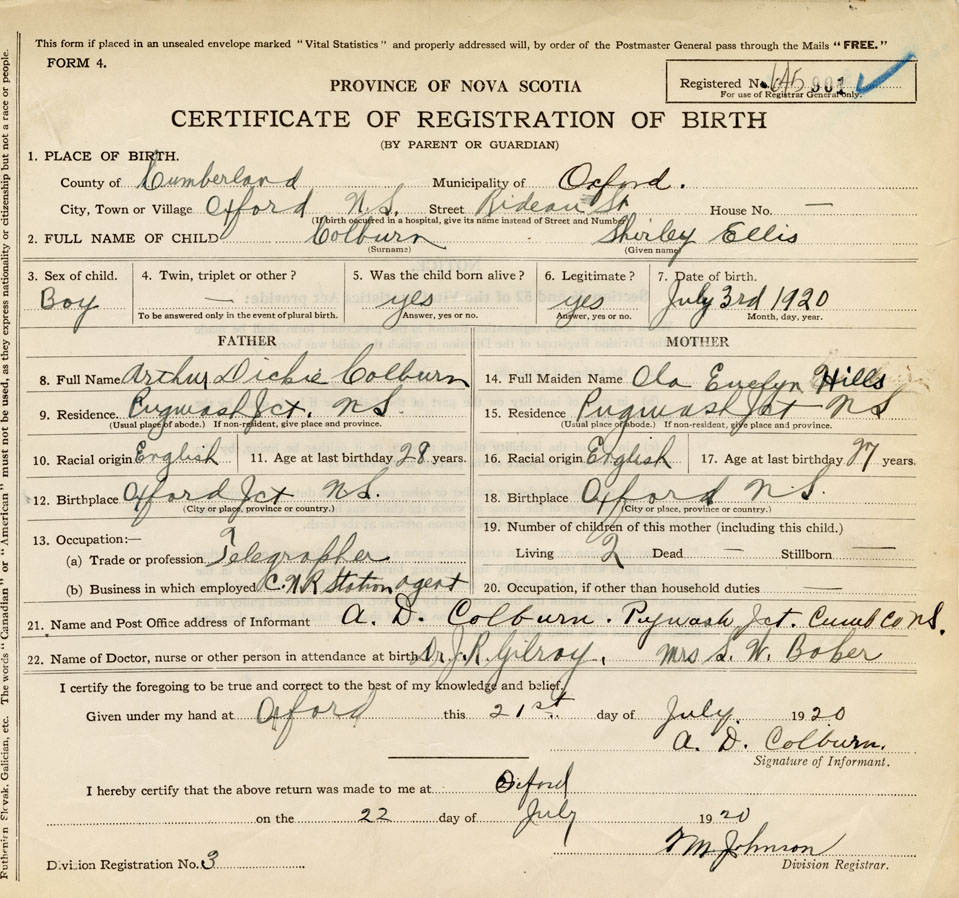 This form if placed in an unsealed envelope marked "Vital Statistics" and properly addressed will, by order of the Postmaster General pass through the Mails "FREE."
FORM 4.
Registered No. 901
For use of Registrar General only.
PROVINCE OF NOVA SCOTIA
CERTIFICATE OF REGISTRATION OF BIRTH
(BY PARENT OR GUARDIAN)
1. PLACE OF BIRTH.
County of Cumberland Municipality of Oxford.
City, Town or Village Oxford N.S. Street Rideau St House No. —
(If birth occurred in a hospital, give its name instead of Street and Number)
2. FULL NAME OF CHILD Colburn Shirley Ellis
(Surname) (Given name)
3. Sex of child. 4. Twin, triplet or other? 5. Was the child born alive? 6. Legitimate? 7. Date of birth.
Boy — yes yes July 3rd 1920
To be answered only in the event of plural birth. Answer, yes or no. Answer, yes or no. Month, day, year.
FATHER
8. Full Name Arthur Dickie Colburn
9. Residence. Pugwash Jct. N.S.
(Usual place of abode.) If non-resident, give place and province.
10. Racial origin English 11. Age at last birthday 28 years.
12. Birthplace Oxford Jct N.S.
(City or place, province or country.)
13. Occupation:—
(a) Trade or profession Telegrapher
(b) Business in which employed C.N.R Station agent
MOTHER
14. Full Maiden Name Ola Evelyn Hills
15. Residence Pugwash Jct N S
(Usual place of abode.) If non-resident, give place and province.
16. Racial origin English 17. Age at last birthday 27 years.
18. Birthplace Oxford N.S.
(City or place, province or country.)
19. Number of children of this mother (including this child.)
Living 2 Dead — Stillborn —
20. Occupation, if other than household duties —
21. Name and Post Office address of Informant A. D. Colburn. Pugwash Jct. Cumb Co N.S.
22. Name of Doctor, nurse or other person in attendance at birth Dr. J. R. Gilroy, Mrs S. W. Baker
I certify the foregoing to be true and correct to the best of my knowledge and belief.
Given under my hand at Oxford this 21st. day of July. 1920
A. D. Colburn.
Signature of Informant.
I hereby certify that the above return was made to me at Oxford
on the 22 day of July 1920
Johnson
Division Registrar.
Division Registration No. 3
Slovak, Galician, etc. The words "Canadian" or "American" must not be used, as they express nationality or citizenship but not a race or people.